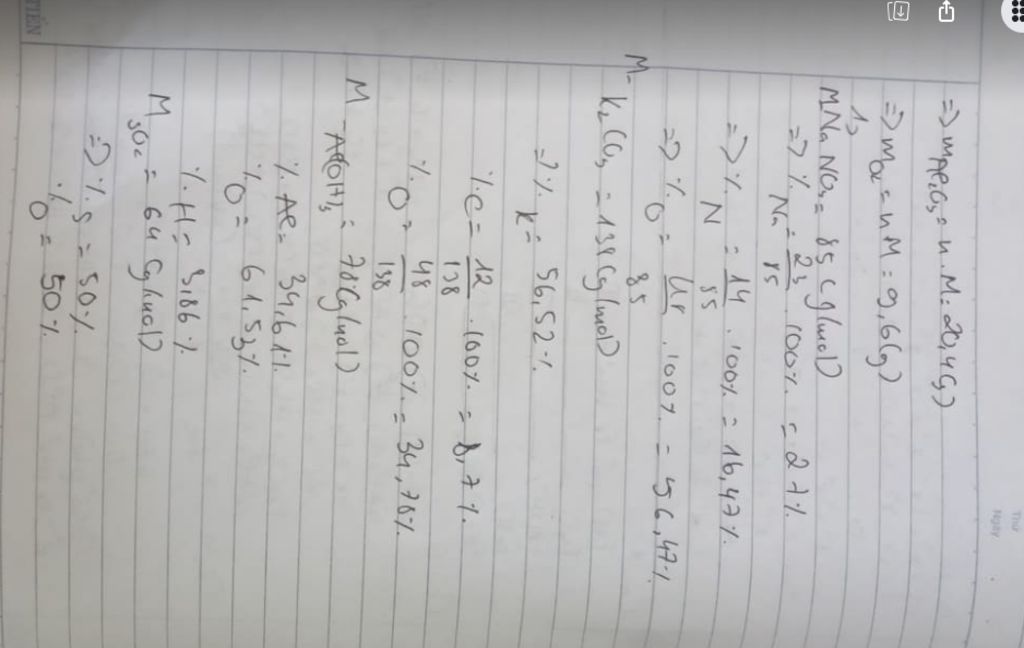 Thứ
Ngày
=> mAl2O3 = n.M = 20,4(g)
=> mO2 = nM = 9,6(g)
1,
MNaNO3 = 85 (g/mol)
=> % Na = 23/85 . 100% = 27%
=> % N = 14/85 . 100% = 16,47%
=> % O = 48/85 . 100% = 56,47%
M K2CO3 = 138 (g/mol)
=> % K = 56,52%
% C = 12/138 . 100% = 8,7%
% O = 48/138 . 100% = 34,78%
M Al(OH)3 = 78 (g/mol)
% Al = 34,61%
% O = 61,53%
% H = 3,86%
M SO2 = 64 (g/mol)
=> % S = 50%
% O = 50%
TIẾN